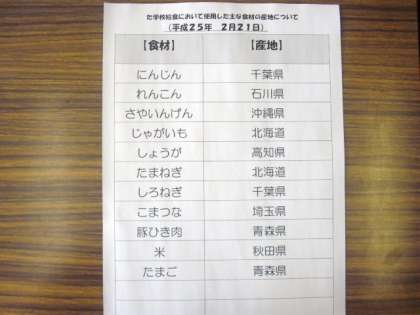 た学校給食において使用した主な食材の産地について
(平成25年 2月21日)
【食材】 【産地】
にんじん 千葉県
れんこん 石川県
さやいんげん 沖縄県
じゃがいも 北海道
しょうが 高知県
たまねぎ 北海道
しろねぎ 千葉県
こまつな 埼玉県
豚ひき肉 青森県
米 秋田県
たまご 青森県